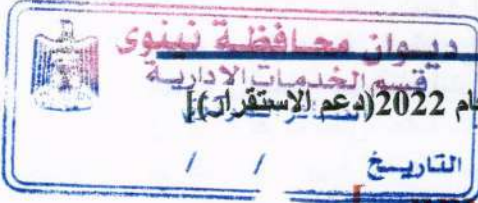 ديوان محافظة نينوى
قسم الخدمات الادارية
عام 2022(دعم الاستقرار)]
التاريخ / /